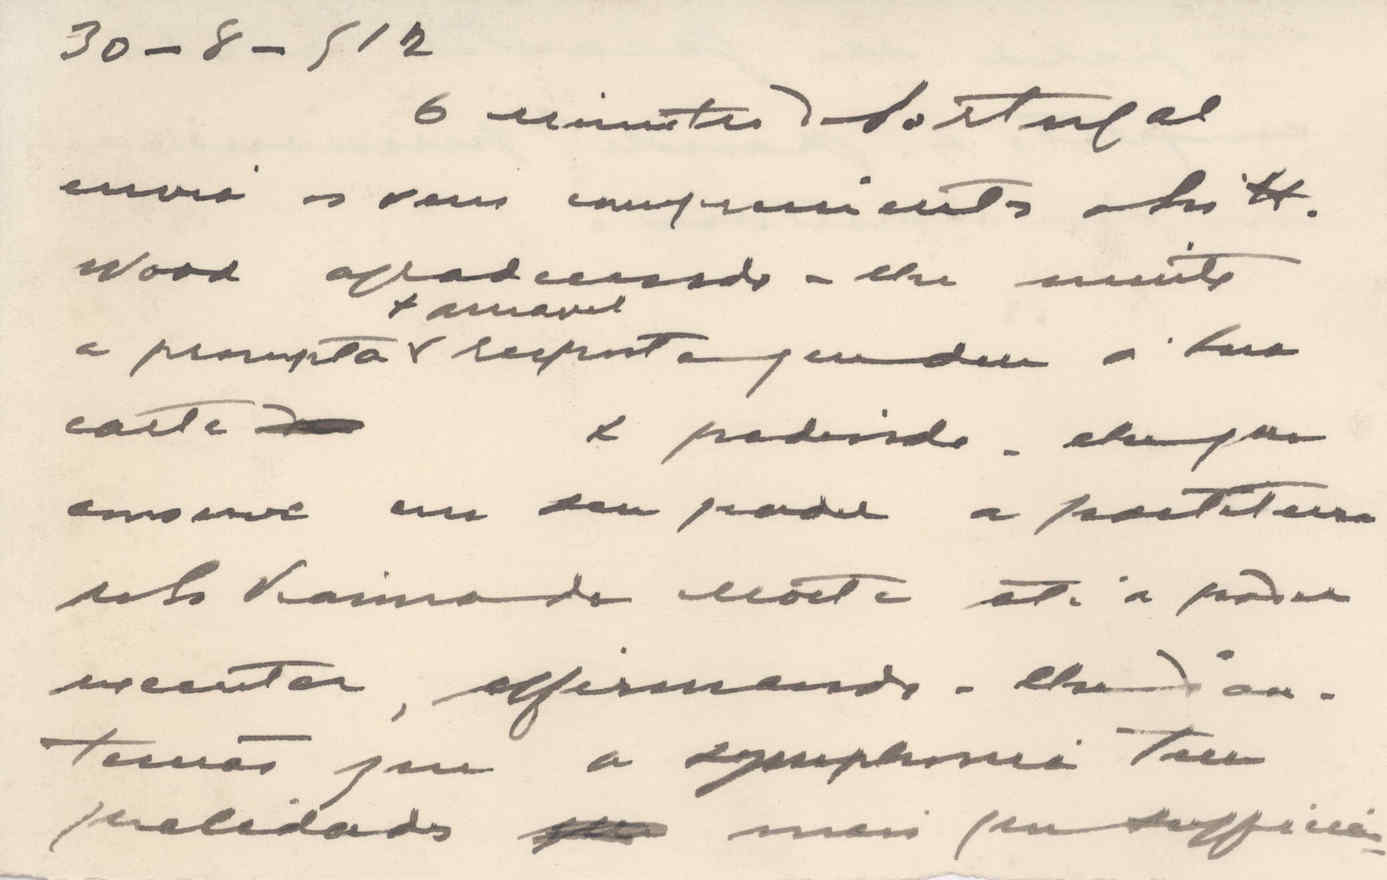 30-8-912
O ministro de Portugal
envia os seus cumprimentos a Sir H.
Wood agradecendo-lhe muito
& amavel
a prompta resposta que deu á sua
carta & pedindo-lhe que
conserve em seu poder a partitura
do Sr Vianna da Motta até a poder
executar, affirmando-lhe d'an-
temão que a symphonia tem
qualidades mais que sufficien-